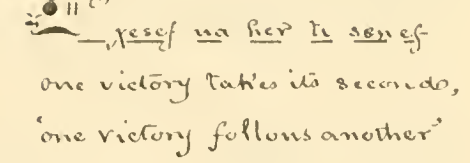 —, χesef ua her ti sen ef
one victory takes its second,
'one victory follows another'